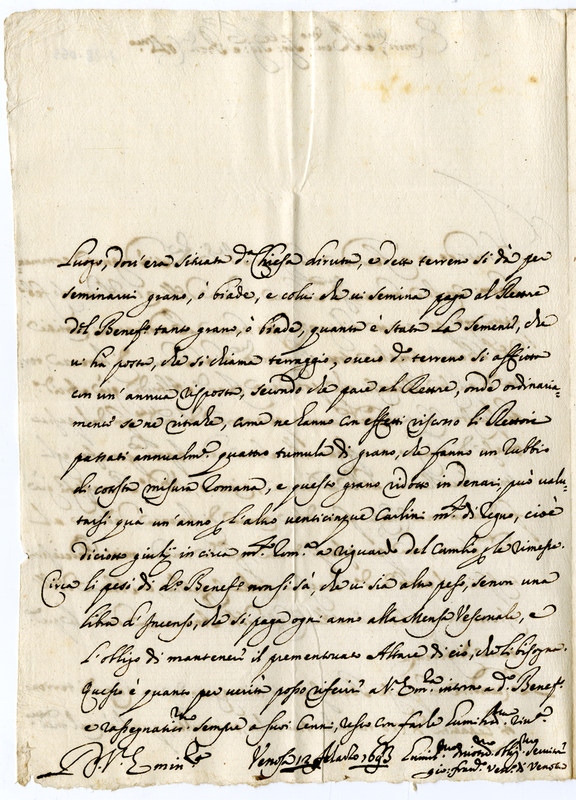 Luogo, dov'era situata d.ª Chiesa diruta, e detto terreno si dà per
seminarvi grano, ò biade, e colui che vi semina paga al Rettore
del Benef.º tanto grano, ò biade, quanta è stata la semenza, che
vi ha posta, che si chiama terraggio, overo d.º terreno si affitta
con un'annua risposta, secondo che pare al Rettore, onde ordinaria-
mente se ne ritrahe, come ne hanno con effetti riscosso li Rettori
passati annualm.te quattro tumula di grano, che fanno un rubbio
di cotesta misura Romana, e questo grano ridotto in denari, può valu-
tarsi quà un'anno p l'altro venticinque Carlini m.ta di Regno, cioè
diciotto giulij in circa m.ta Rom.ª a riguardo del Cambio p le rimesse.
Circa li pesi di d.º Benef.º non si sà, che vi sia altro peso, se non una
libra d'Incenso, che si paga ogni anno alla Mensa Vescovale, e
l'obligo di mantenere il prementovato Altare di ciò, che li bisogna.
Questo è quanto per verità posso riferire a V. Em.za intorno a d.º Benef.º
e rassegnatiss.mo sempre a suoi Cenni, resto con farle humiliss.ma riv.za
D. V. Emin.za Venosa 12 Marzo 1693 Humiliss.mo Servitore
Gio: Fran.co Vesc.º di Venosa